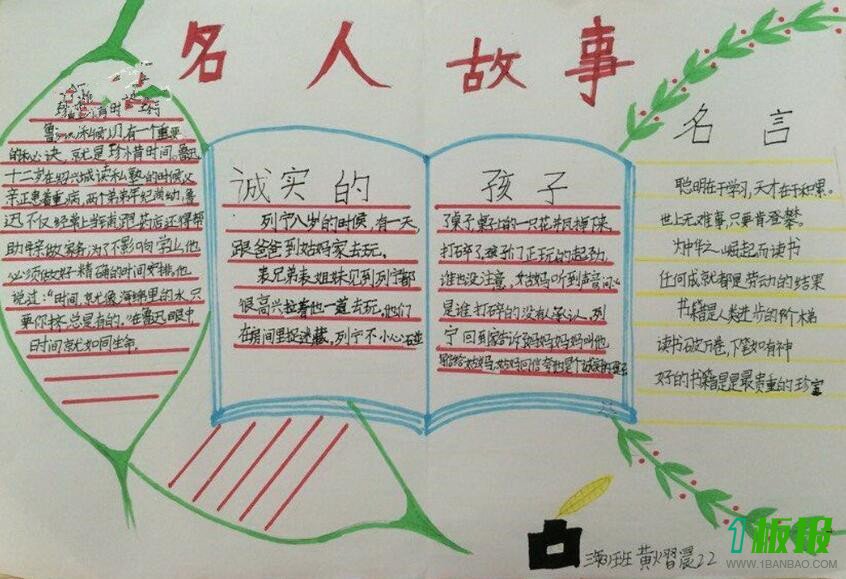 名人故事
鲁迅的时候,有一个重要
的秘诀,就是珍惜时间。鲁迅
十二岁在绍兴城读私塾的时候父
亲正患着重病,两个弟弟年纪尚幼,鲁
迅不仅经常上当铺,跑药店还得帮
助母亲做家务为了不影响学业,他
必须做好精确的时间安排。他
说过:“时间,就像海绵里的水,只
要你挤,总是有的。”在鲁迅眼中,
时间就如同生命.
诚实的
列宁八岁的时候,有一天,
跟爸爸到姑妈家去玩。
表兄弟表姐妹见到列宁都
很高兴拉着他一道去玩。他们
在房间里捉迷藏,列宁不小心碰
孩子
了桌子,桌子上的一只花瓶掉下来,
打碎了孩子们正玩的起劲,
谁也没注意,姑妈听到声音问
是谁打碎的没有人承认,列
宁回到家告诉妈妈妈妈叫他
写信给姑妈,姑妈回信夸他是个诚实的孩子
名言
聪明在于学习,天才在于积累。
世上无难事,只要肯登攀。
为中华之崛起而读书
任何成就都是劳动的结果
书籍是人类进步的阶梯
读书破万卷,下笔如有神
好的书籍是是最贵重的珍宝
班 黄熠晨22
1板报
WWW.1BANBAO.COM